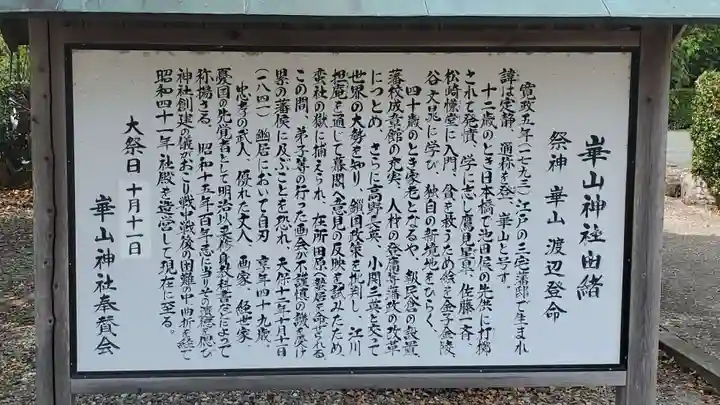 崋山神社由緒
祭神 崋山 渡辺登命
寛政五年(一七九三)江戸の三宅藩邸で生まれ
諱は定静 通称を登 崋山と号す
十二歳のとき日本橋で池田侯の先供に打擲
されて発憤、学に志し鷹見星皐、佐藤一斉、
松崎慊堂に入門、貧を救うため絵を金子金陵
谷文晁に学び、独自の新境地をひらく、
四十歳のとき家老となるや、報民倉の設置
藩校成章館の充実、人材の発庸等藩政の改革
につとめ、さらに高野長英、小関三英と交って
世界の大勢を知り、鎖国政策を批判し、江川
担庵を通じて幕閣へ意見の反映を試みたため、
蛮社の獄に捕えられ、在所田原に蟄居を命ぜられる
この間、弟子等の行った画会が不謹慎の譏を受け
累の藩侯に及ぶことを恐れ、天保十二年十月十一日
(一八四一)幽居において自刃 享年四十九歳、
忠孝の武人、優れた文人、画家、経世家、
憂国の先覚者として明治以来修身教科書などによって
称揚さる、昭和十五年百年忌に当りその遺徳を偲び
神社創建の儀がおこり戦中戦後の困難の中曲折を経て
昭和四十一年社殿を造営して現在に至る。
大祭日 十月十一日
崋山神社奉賛会